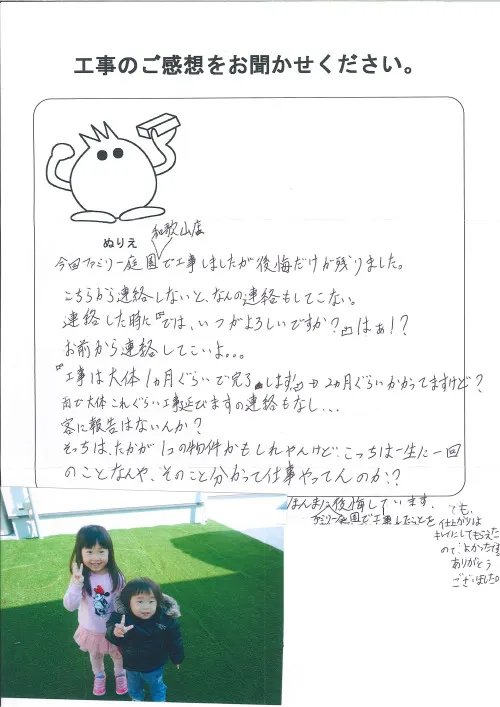 工事のご感想をお聞かせください。
ぬりえ
和歌山店
今回ファミリー庭園で工事しましたが後悔だけが残りました。
こちらから連絡しないと、なんの連絡もしてこない。
連絡した時に『では、いつがよろしいですか?』はぁ!?
お前から連絡してこいよ。。。
『工事は大体1ヵ月ぐらいで完了します!』→2ヵ月ぐらいかかってますけど?
雨で大体これぐらい工事延びますの連絡もなし...
客に報告はないんか?
そっちは、たかが1つの物件かもしれやんけど、こっちは一生に一回
のことなんや、そのこと分かって仕事やってんのか??
ほんまに後悔しています。
ファミリー庭園で工事したことを
でも、
仕上がりは
キレイにしてもらえた
ので、よかったです
ありがとう
ございました。